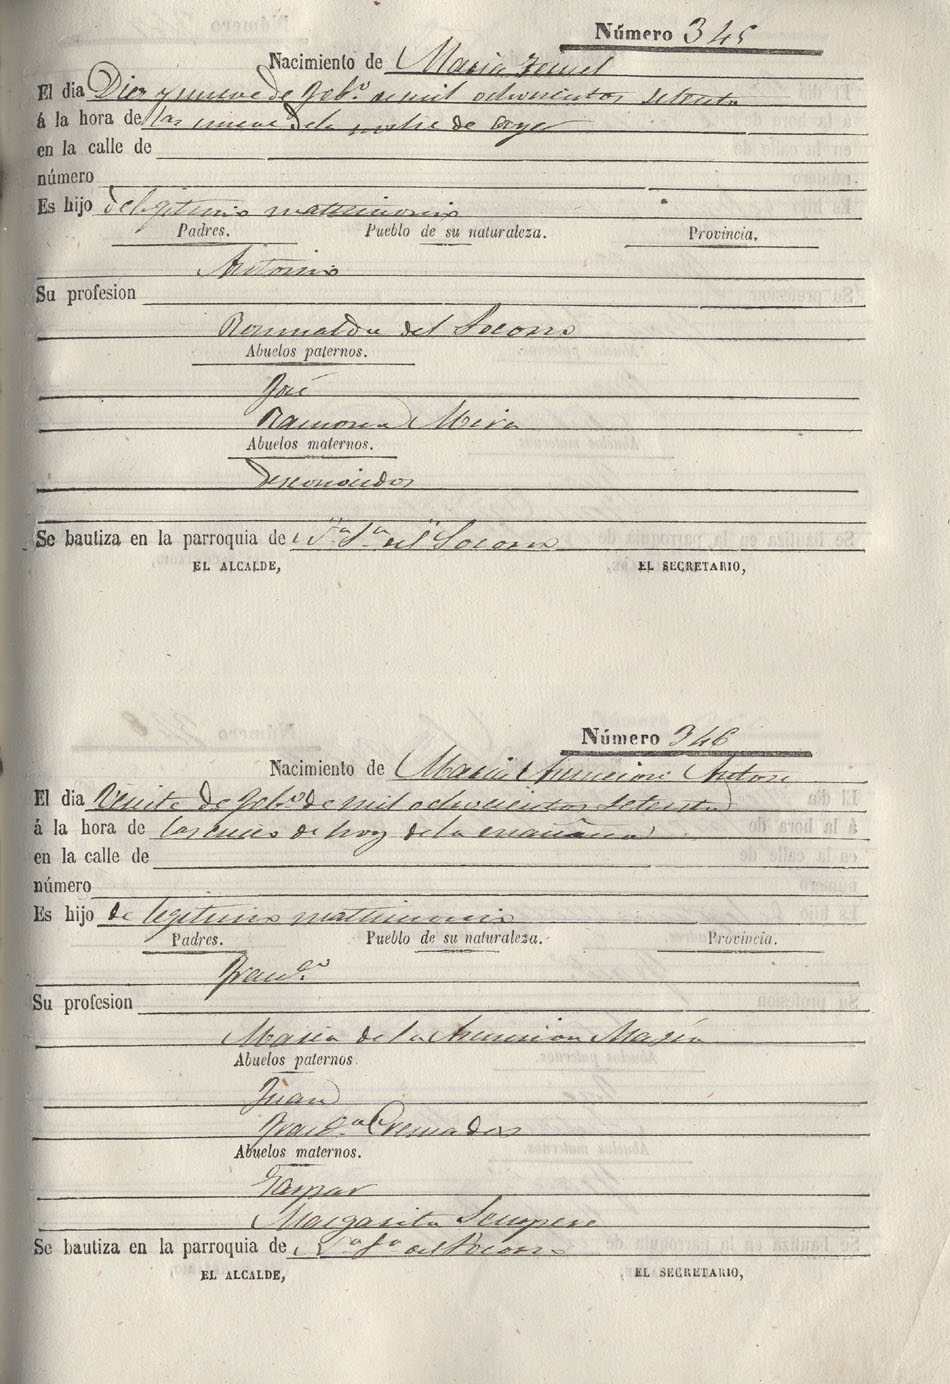 Número 345
Nacimiento de Maria
El dia Diez y nueve de Feb.º de mil ochocientos setenta
á la hora de las nueve de la noche de ayer
en la calle de
número
Es hijo de legitimo matrimonio
Padres. Pueblo de su naturaleza. Provincia.
Antonio
Su profesion
Romualda del Socorro
Abuelos paternos.
José
Ramona Mira
Abuelos maternos.
desconocidos
Se bautiza en la parroquia de N.ª S.ª del Socorro
EL ALCALDE, EL SECRETARIO,
Número 346
Nacimiento de Maria Asuncion Anton
El dia Veinte de Feb.º de mil ochocientos setenta
á la hora de las cinco de hoy de la mañana
en la calle de
número
Es hijo de legitimo matrimonio
Padres. Pueblo de su naturaleza. Provincia.
Fran.co
Su profesion
Maria de la Asuncion
Abuelos paternos.
Juan
Fran.ca Cremades
Abuelos maternos.
Gaspar
Margarita Sempere
Se bautiza en la parroquia de N.ª S.ª del Socorro
EL ALCALDE, EL SECRETARIO,